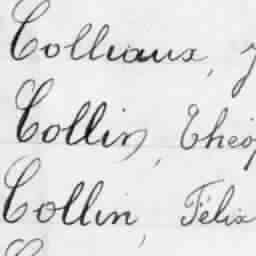 Colliaux,
Collin, Théo
Collin, Félix